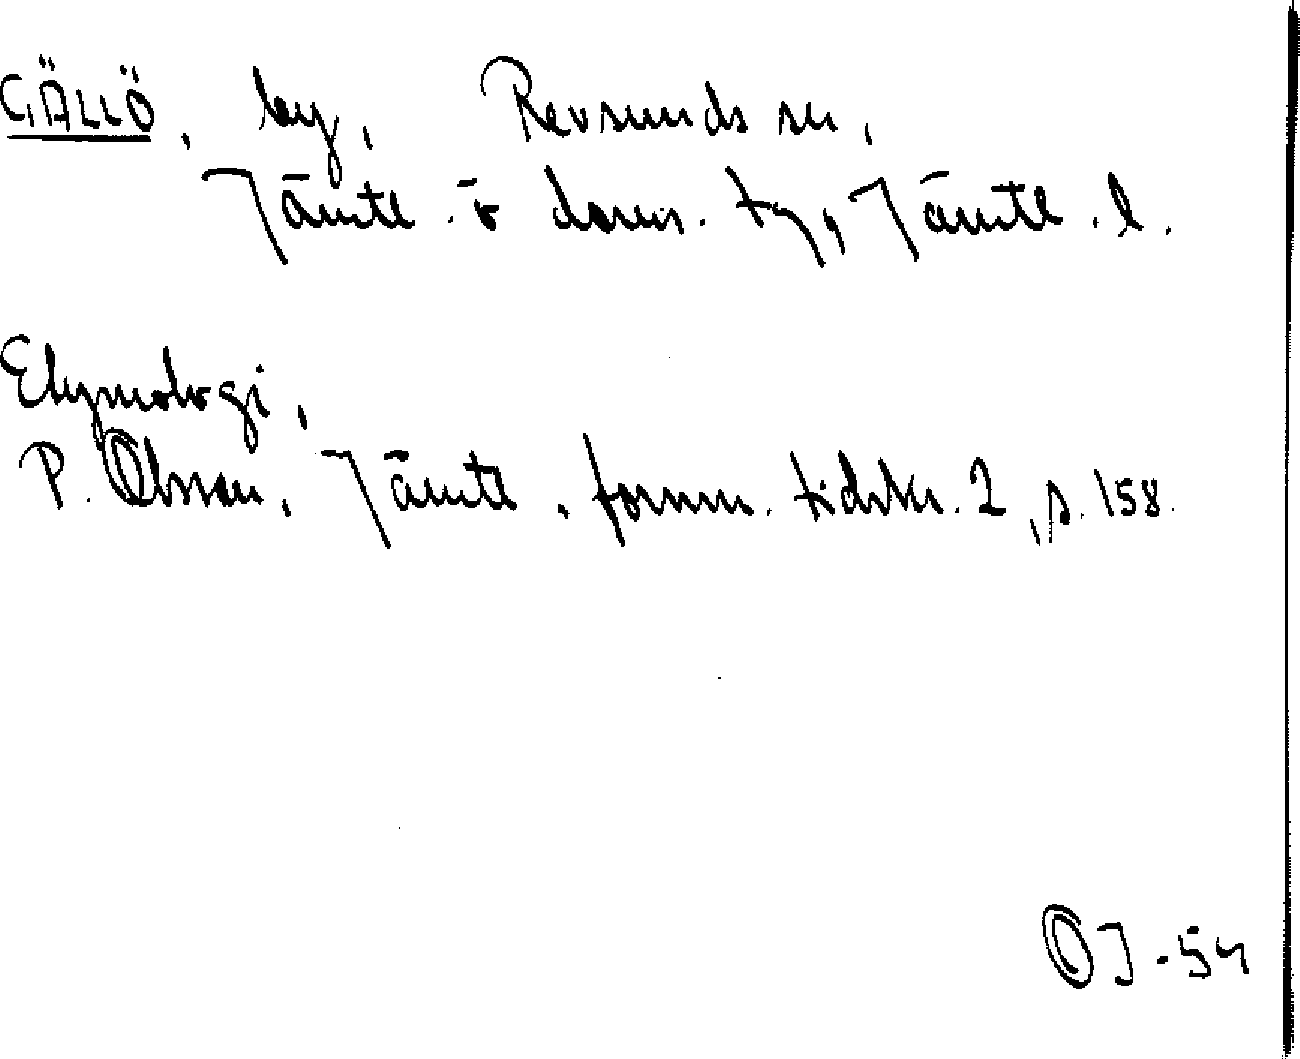 GÄLLÖ, by, Revsunds sn,
Jämtl. ö doms. tg, Jämtl. l.
Etymologi,
P. Olsson, Jämtl. fornm. tidskr. 2, s. 158.
OJ-54